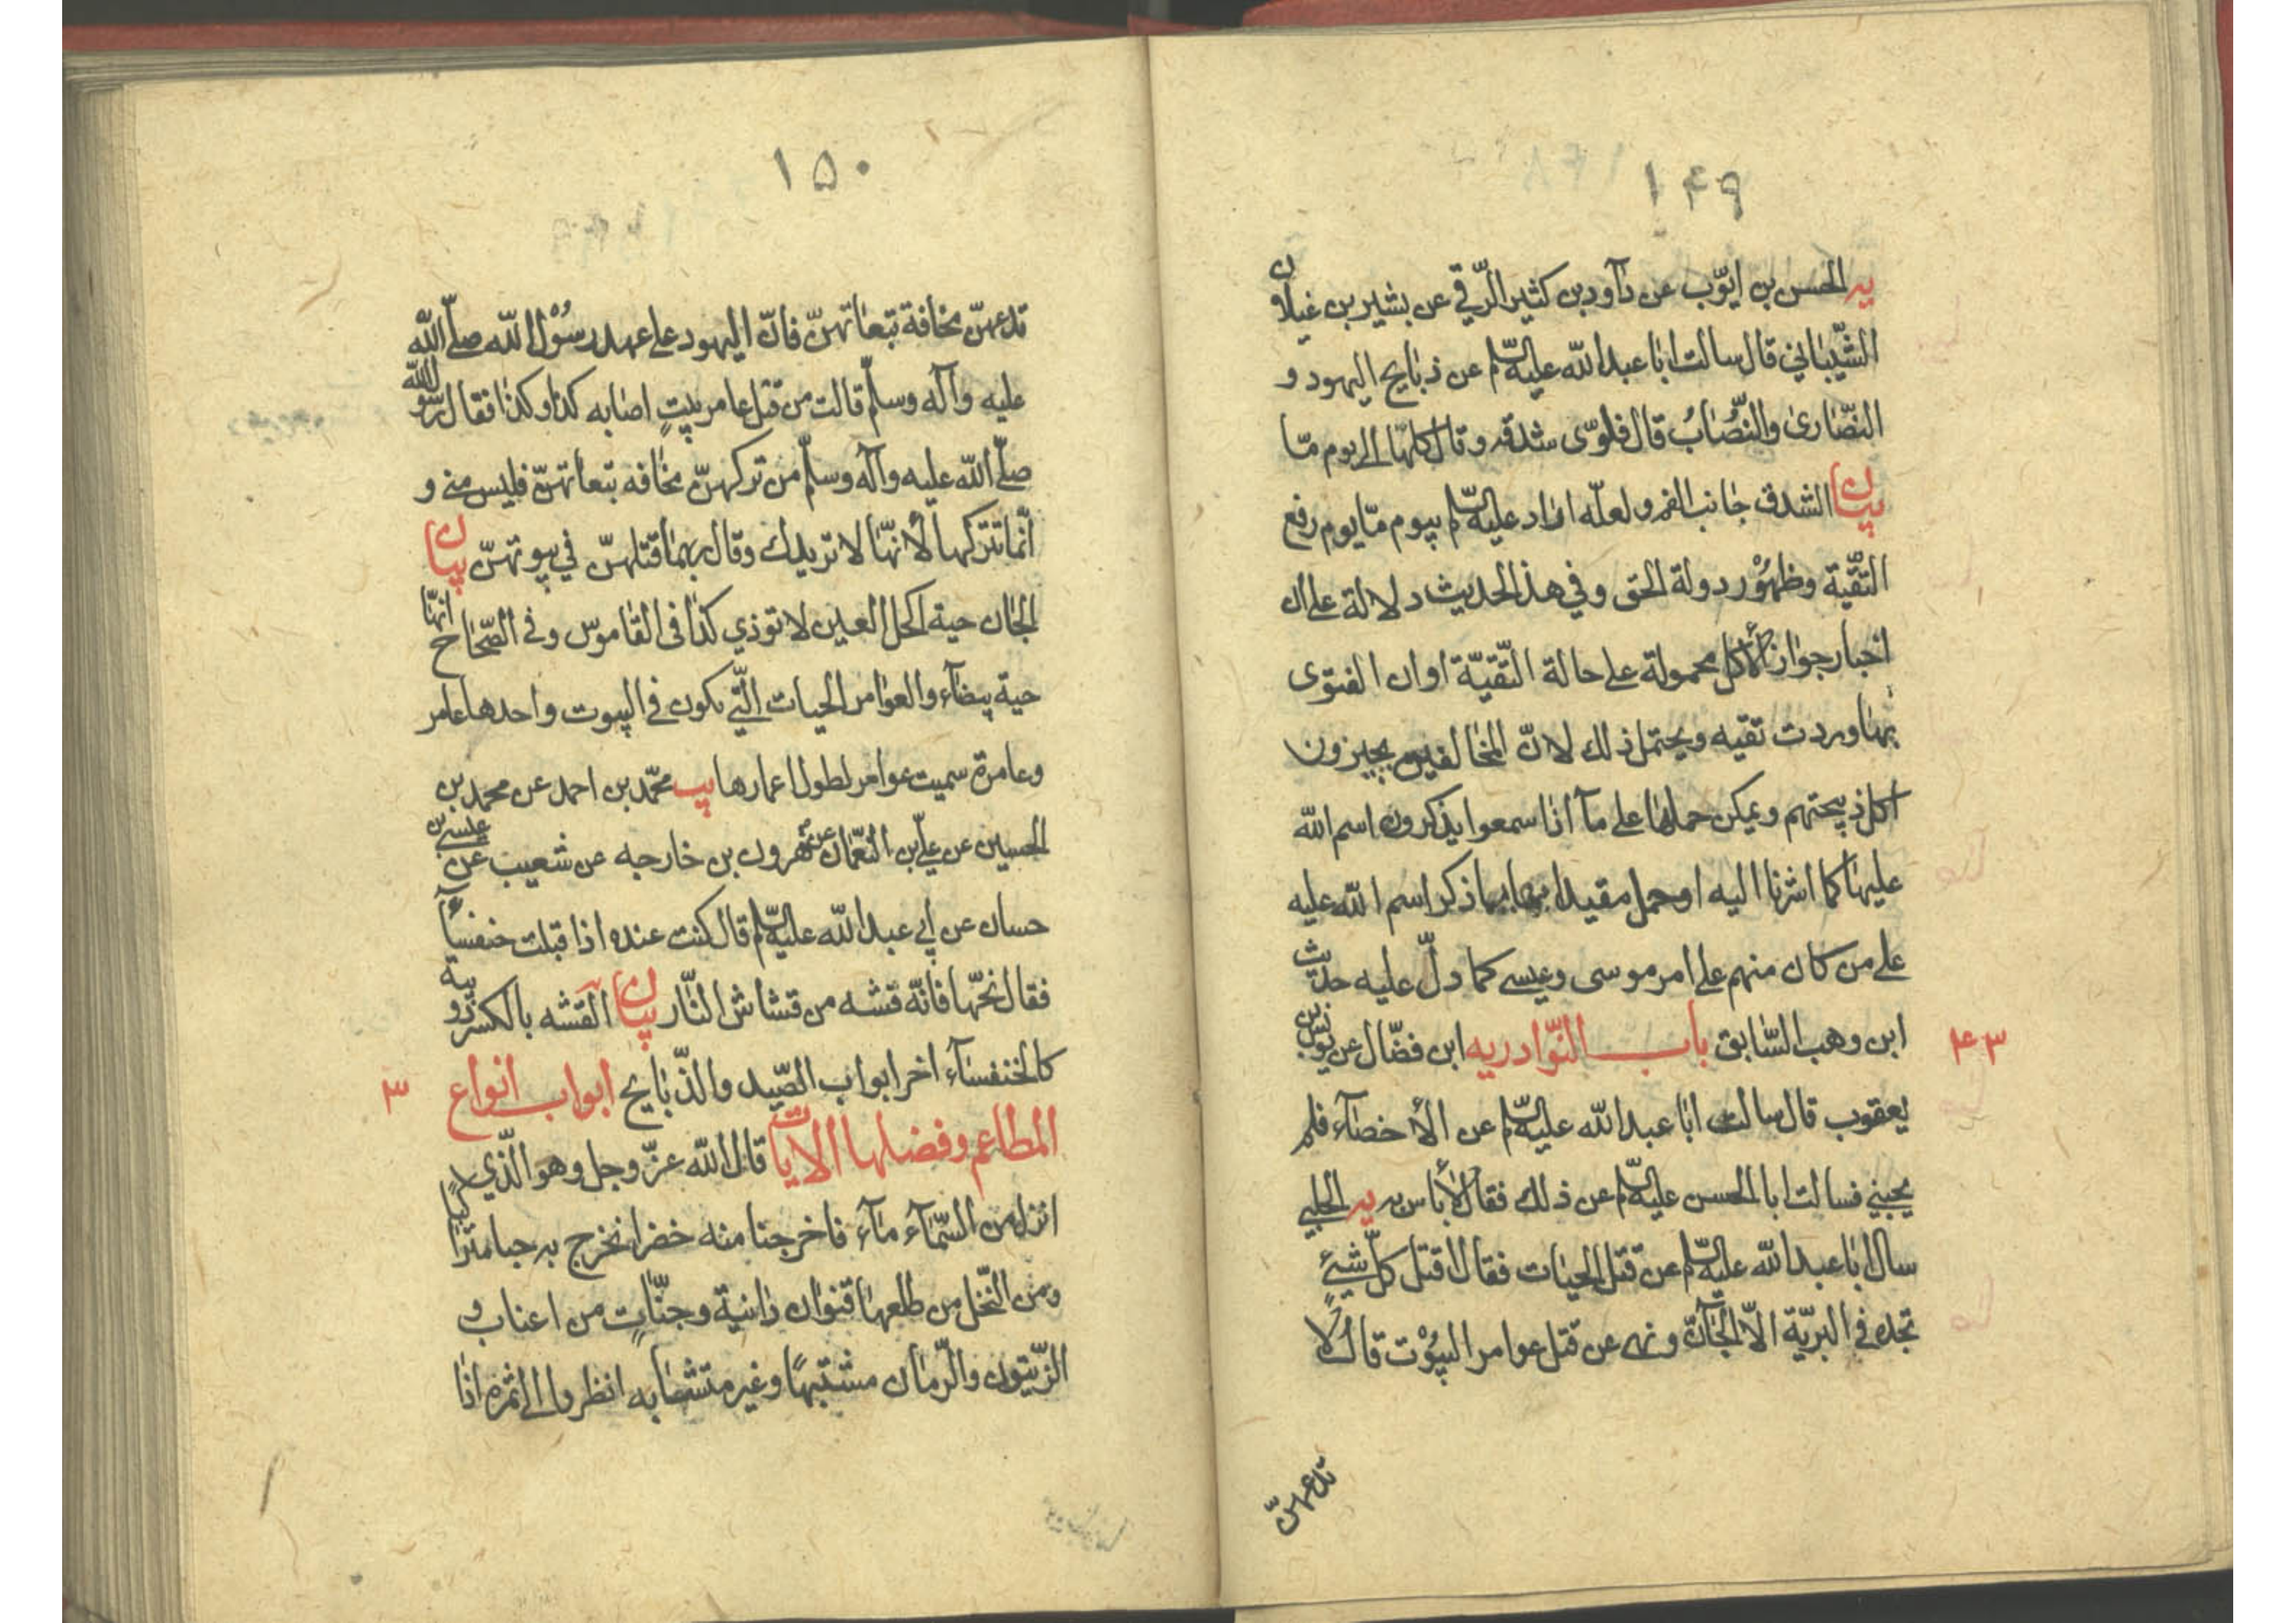 ١٤٩
يه الحسن بن ايّوب عن داود بن كثير الرّقي عن بشير بن غيلان
الشّيباني قال سالت ابا عبد الله عليه السّلم عن ذبايح اليهود و
النصّارى والنصّاب قال فلوّى شدقه وقال كلها الى يوم ما
بيان الشدق جانب الفم ولعلّه اراد عليه السّلم بيوم ما يوم رفع
التّقيّة وظهور دولة الحق وفي هذا الحديث دلالة على ان
اخبار جواز الأكل محمولة على حالة التّقيّة او ان الفتوى
بها وردت تقيه ويحتمل ذلك لانّ المخالفين يجيزون
اكل ذبيحتهم ويمكن حملها على ما اذا سمعوا يذكرون اسم الله
عليها كما اشرنا اليه او حمل مقيدا بها بما ذكر اسم الله عليه
على من كان منهم على امر موسى وعيسى كما دلّ عليه حديث
ابن وهب السّابق باب النّوادر يه ابن فضّال عن يونس بن
٤٣
يعقوب قال سالت ابا عبد الله عليه السّلم عن الأخصاء فلم
يجبني فسالت ابا الحسن عليه السّلم عن ذلك فقال لا باس به يه الحلبي
سال ابا عبد الله عليه السّلم عن قتل الحيات فقال اقتل كلّ شيئ
تجده في البريّة الّا الجانّ ونهى عن قتل عوامر البيوت قال لا
تدعهنّ
١٥٠
تدعهنّ مخافة تبعاتهنّ فانّ اليهود على عهد رسول الله صلّى الله
عليه وآله وسلّم قالت من قتل عامر بيت اصابه كذا وكذا فقال رسول الله
صلّى الله عليه وآله وسلّم من تركهنّ مخافه تبعاتهنّ فليس مني و
انّما تتركها لأنها لا تريدك وقال ربما قتلهنّ في بيوتهنّ بيان
الجان حية اكحل العين لا توذي كذا في القاموس وفي الصّحاح انها
حية بيضاء والعوامر الحيات الّتي تكون في البيوت واحدها عامر
وعامرة سميت عوامر لطول اعمارها يب محمّد بن احمد عن محمد بن
الحسين عن عليّ بن النعمان عن هرون بن خارجه عن شعيب عن عيسى بن
حسان عن ابي عبد الله عليه السّلم قال كنت عنده اذا قبلت خنفسآء
فقال نحّها فانّه قشه من قشاش النّار بيان القشه بالكسر دويبة
كالخنفساء اخر ابواب الصّيد والذّبايح ابواب انواع
٣
المطاعم وفضلها الايات قال الله عزّ وجل وهو الّذي
انزل من السّماء ماء فاخرجنا منه خضرا نخرج به حبا متراكبا
ومن النّخل من طلعها قنوان دانية وجنّاتٍ من اعناب و
الزّيتون والرّمان مشتبهًا وغير متشابه انظروا الى ثمره اذا